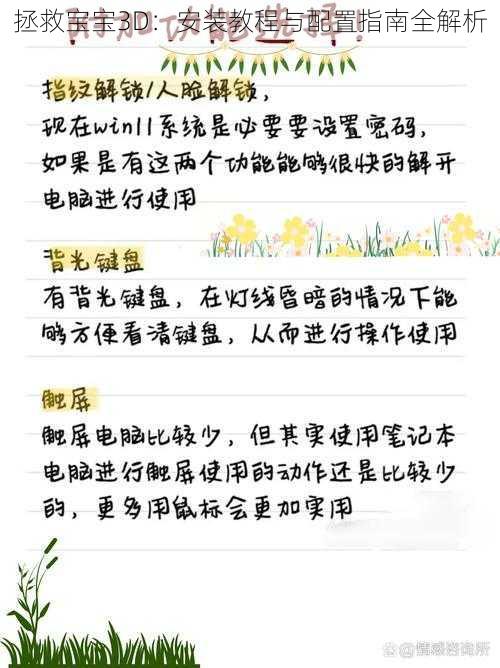 拯救宝宝3D：安装教程与配置指南全解析
附加功能选择！
指纹解锁/人脸解锁，
现在win11系统是必要要设置密码，
如果是有这两个功能能够很快的解开
电脑进行使用
背光键盘
有背光键盘，在灯线昏暗的情况下能
够方便看清键盘，从而进行操作使用
触屏
触屏电脑比较少，但其实使用笔记本
电脑进行触屏使用的动作还是比较少
的，更多用鼠标会更加实用
@情感咨询所